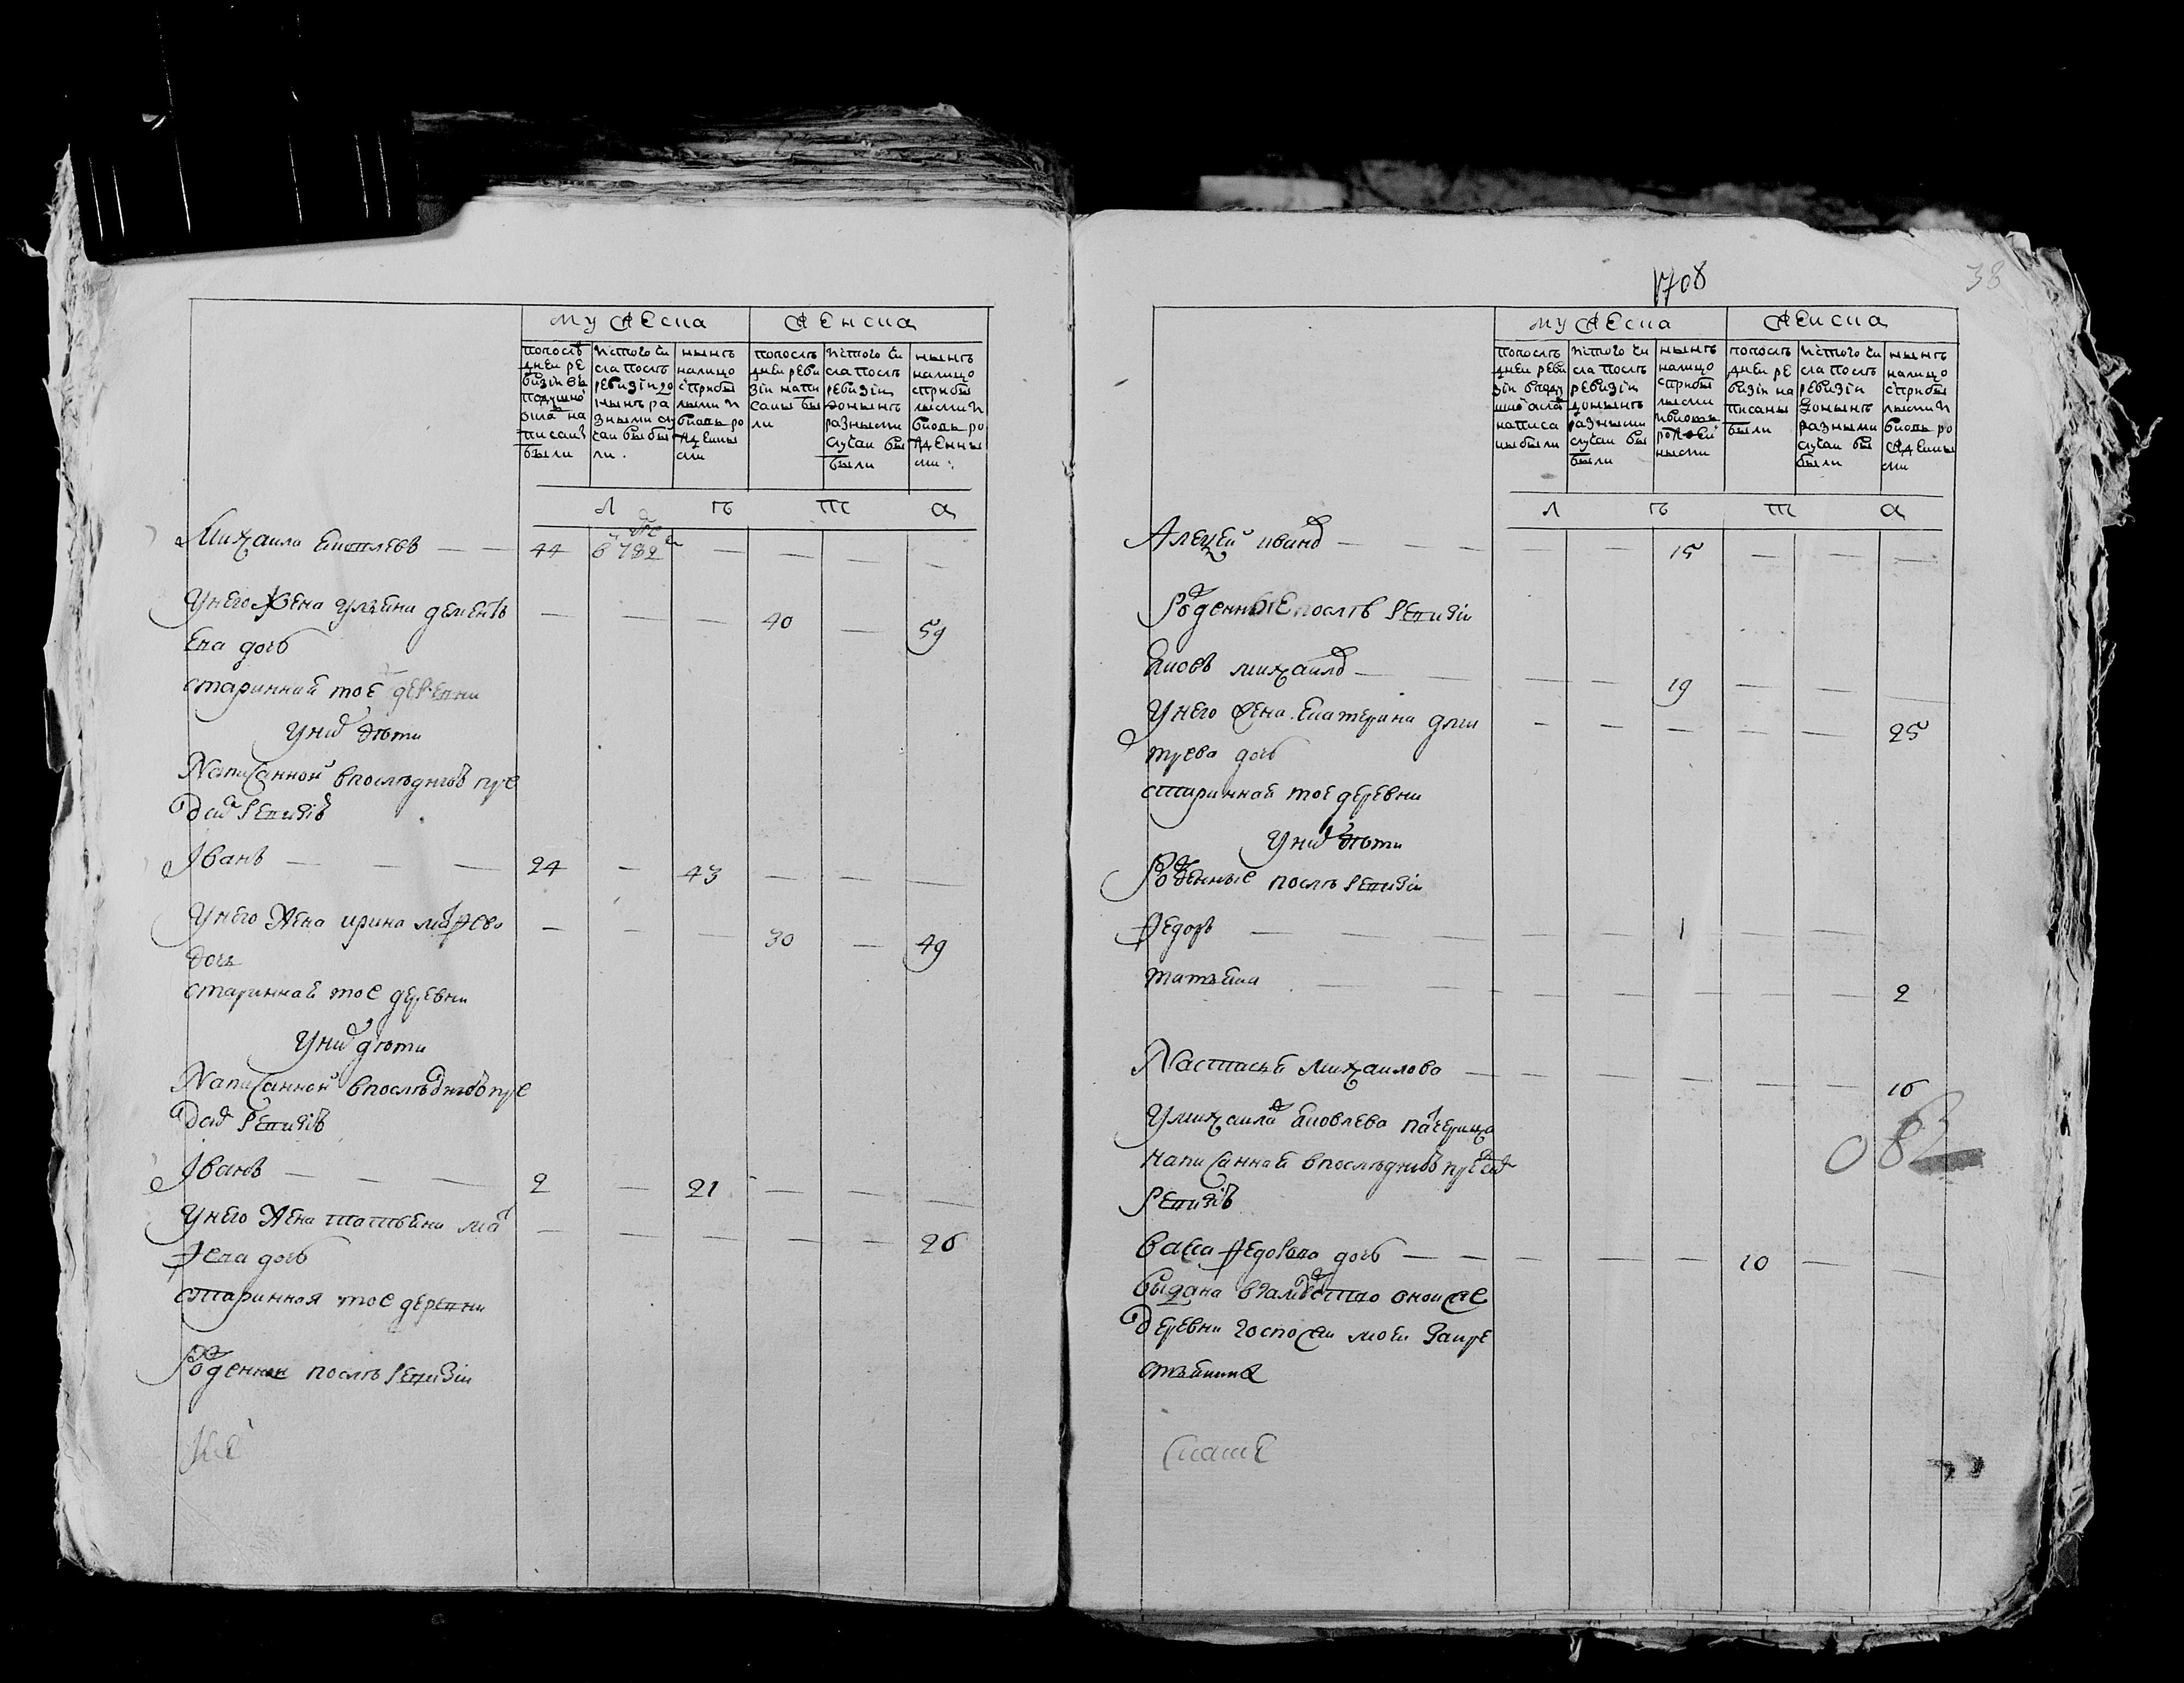 мужеска
женска
попослѣ
днеи ре
визiи въ
подушно
окла на
писаны
были
ис того чи
сла послѣ
ревизiи до
нынѣ ра
зными слу
чаи выбы
ли.
нынѣ
налицо
с прибы
лыми и
вновь ро
жденны
ми
попослѣ
днеи реви
зiи напи
саны бы
ли
ис того чи
сла послѣ
ревизiи
донынѣ
разными
случаи вы
были
нынѣ
налицо
с прибы
лыми и
вновь ро
жденны
ми
л ѣ т а
Михаила Яковлевъ — — 44 в 782 — — — —
У него жена Ульяна дементь — — — 40 — 59
ева дочь
старинная тое деревни
У них дѣти
Написанной в последнеѣ пре
д сей ревизiѣ
Iванъ — — — 24 — 43 — — —
У него жена ирина матфеева — — — 30 — 49
дочь
старинная тое деревни
У них дѣти
Написанной в последнеѣ пре
д сей ревизiѣ
Iванъ — — — 2 — 21 — — —
У него жена татьяна мат — — — — — 26
феева дочь
старинная тое деревни
Рожденные послѣ ревизiи
1708
38
мужеска
женска
попослѣ
днеи реви
зiи в поду
шно окла
написа
ны были
ис того чи
сла послѣ
ревизiи
донынѣ
разными
случаи вы
были
нынѣ
налицо
с прибы
лыми
и вновь
рожден
ными
попослѣ
днеи ре
визiи на
писаны
были
ис того чи
сла послѣ
ревизiи
донынѣ
разными
случаи вы
были
нынѣ
налицо
с прибы
лыми и
вновь ро
жденны
ми
л ѣ т а
Алексей иванов — — — — — 15 — — —
Рожденные послѣ ревизiи
Яковъ михаилов — — — — 19 — — —
У него жена Екатерина дми — — — — — 25
трева дочь
старинная тое деревни
У них дѣти
Рожденные послѣ ревизiи
Федоръ — — — — — 1 — — —
татьяна — — — — — — — — 2
Настасья михаилова — — — — — — 16
У михаила Яковлева падчерица
написанная в последнеѣ пред сей
ревизiѣ
васса федорова дочь — — — — — 10 — —
выдана в замужство в оной же
деревни господи моей за кре
стьянина
082